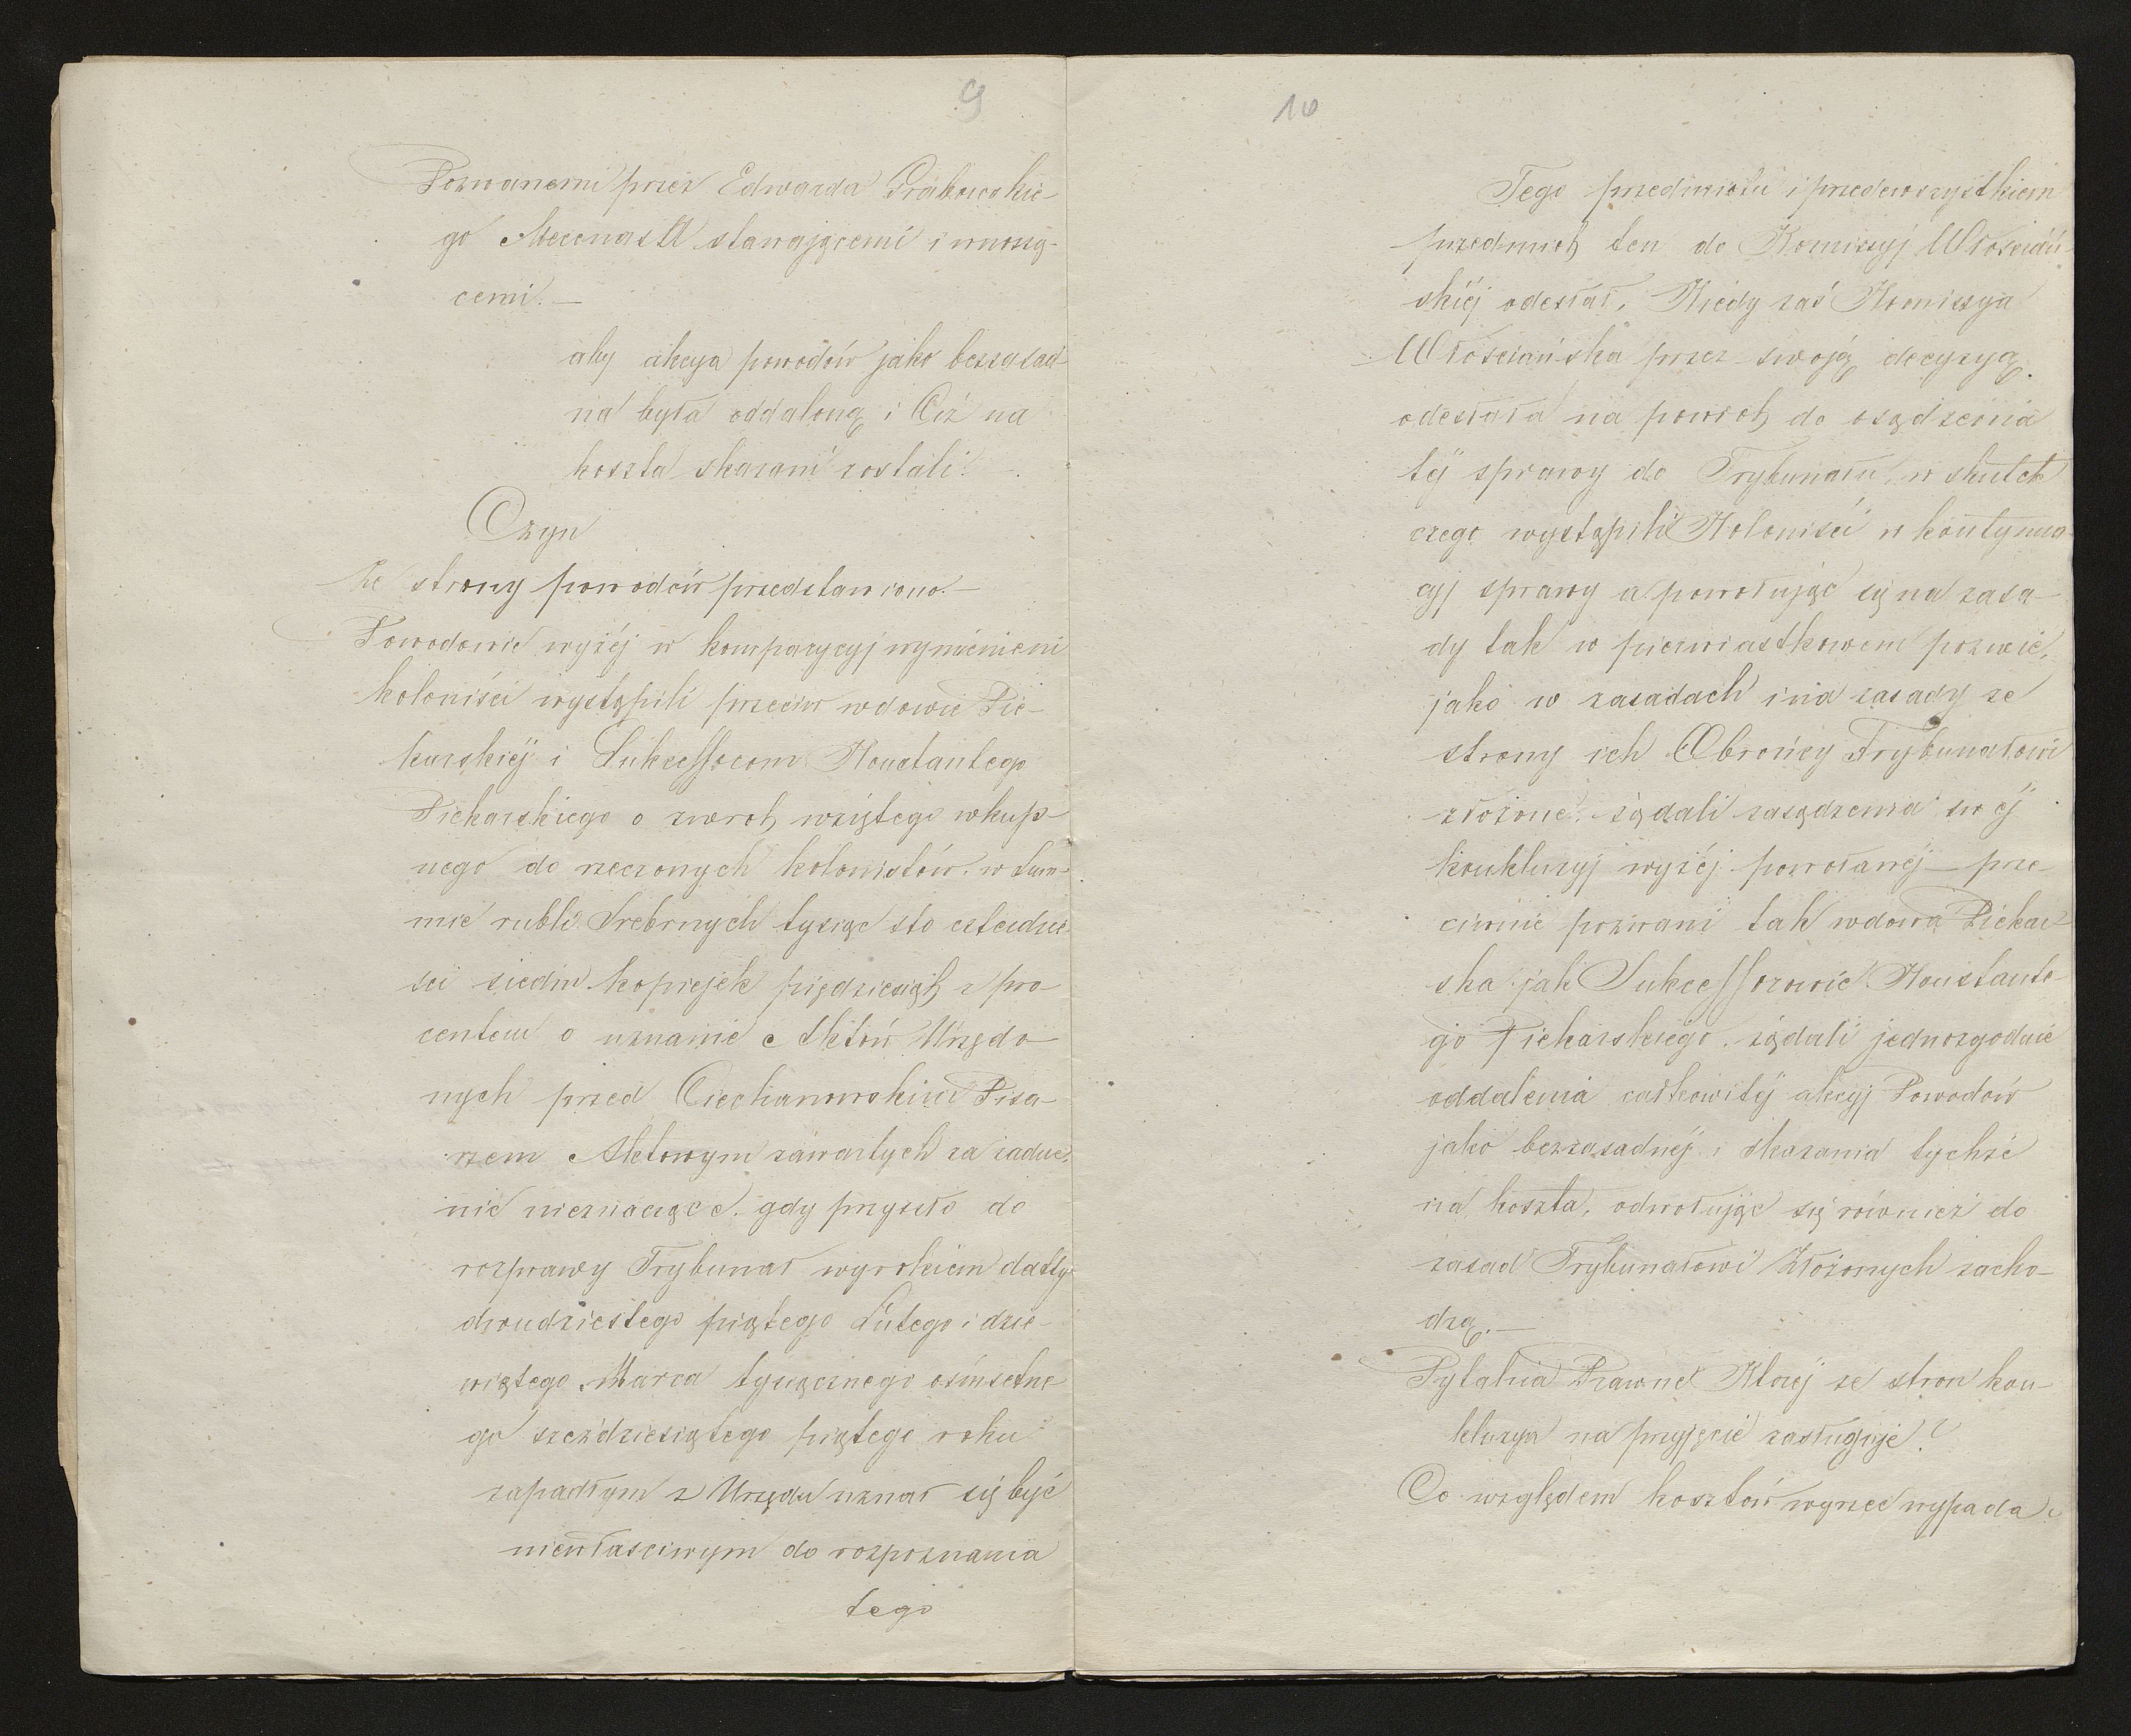 9
Pozwanemi przez Edwarda Grabowskie-
go Mecenasa stawającemi i wnoszą-
cemi. —
aby akcya powodów jako bezzasad-
na była oddaloną i Ciż na
koszta skazani zostali. —
Czyn
Ze strony powodów przedstawiono. —
Powodowie wyżéj w komparycyj wymienieni
koloniści wystąpili przeciw wdowie Pie-
karskiéj i Sukcessorom Konstantego
Piekarskiego o zwrot wziętego wkup-
nego do rzeczonych kolonistów w sum-
mie rubli Srebrnych tysiąc sto czterdzie-
ści siedm kopiejek pięćdziesiąt z pro-
centem o uznanie Aktów Urzędo-
nych przed Ciechanowskim Pisa-
rzem Aktowym zawartych za żadne,
nic nieznaczące. gdy przyszło do
rozprawy Trybunał wyrokiem datty
dwudziestego piątego Lutego i dzie-
wiątego Marca tysiącznego ośmsetne
go sześćdziesiątego piątego roku
zapadłym z Urzędu uznał się być
niewłaściwym do rozpoznania
tego
10
Tego przedmiotu i przedewszystkiem
przedmiot ten do Komissyj Włościań
skiéj odesłał, Kiedy zaś Komissya
Włościańska przez swoją decyzyą
odesłała na powrot do osądzenia
téj sprawy do Trybunału, w skutek
czego wystąpili Koloniści w kontynua
cyj sprawy a powołując się na zasa-
dy tak w pierwiastkowem pozwie,
jako w zasadach i na zasady ze
strony ich Obrońcy Trybunałowi
złożone, żądali zasądzenia swéj
konkluzyj wyżéj powołanéj — prze
ciwnie pozwani tak wdowa Piekar
ska jak Sukcessorowie Konstante
go Piekarskiego, żądali jednozgodnie
oddalenia całkowitéj akcyj Powodów
jako bezzasadnéj i skazania tychże
na koszta, odwołując się również do
zasad Trybunałowi Złożonych zacho-
dzą. —
Pytania Prawne Któréj ze stron kon-
kluzya na przyjęcie zasługuje?
Co względem kosztów wyrzec wypada?